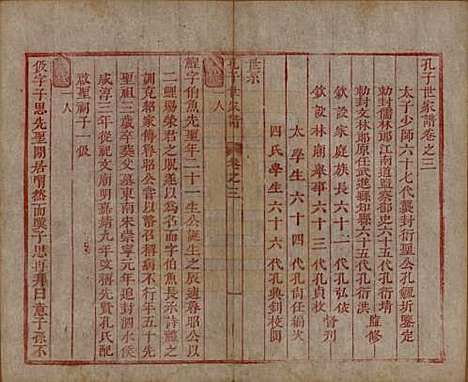 孔子世家譜卷之三
太子少師六十七代襲封衍聖公孔毓圻鑒定
勅封儒林郎江南道監察御史六十代孔尚
勅封文林郎原任武進縣知縣六十六代孔衍洪 監修
欽設家庭族長六十一代孔弘依
欽設林廟舉事六十三代孔貞枚 督刊
太學生六十四代孔尚任編次
四氏學生六十六代孔興釗校閱
世系
孔子世家譜 卷之三 一
一人
鯉字伯魚先聖年二十一生公誕生之辰適昭公以
二鯉賜榮君之貺遂以命名字伯魚長承詩禮之
訓克紹家傳魯以幣召稱疾不行年五十先
聖三歲卒葵父墓東南宋崇寧元年追封泗水侯
咸淳三年從祀文廟明嘉靖九年改稱先賢孔氏配
啟聖祠子一伋
一人
伋字子思先聖閒居喟然而歎子思再拜曰意子孫不